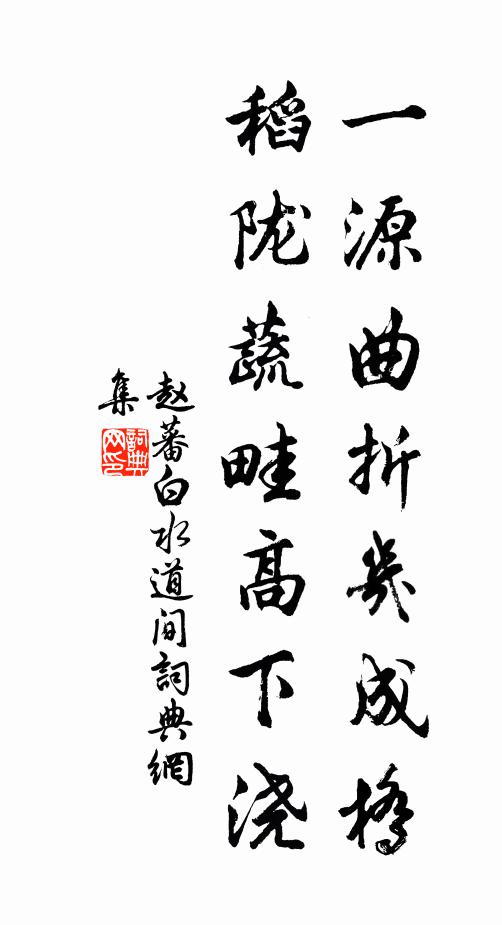 一源曲折幾成橋
稻陇蔬畦高下浇
赵蕃白水道间詞典網
集
詞典网印